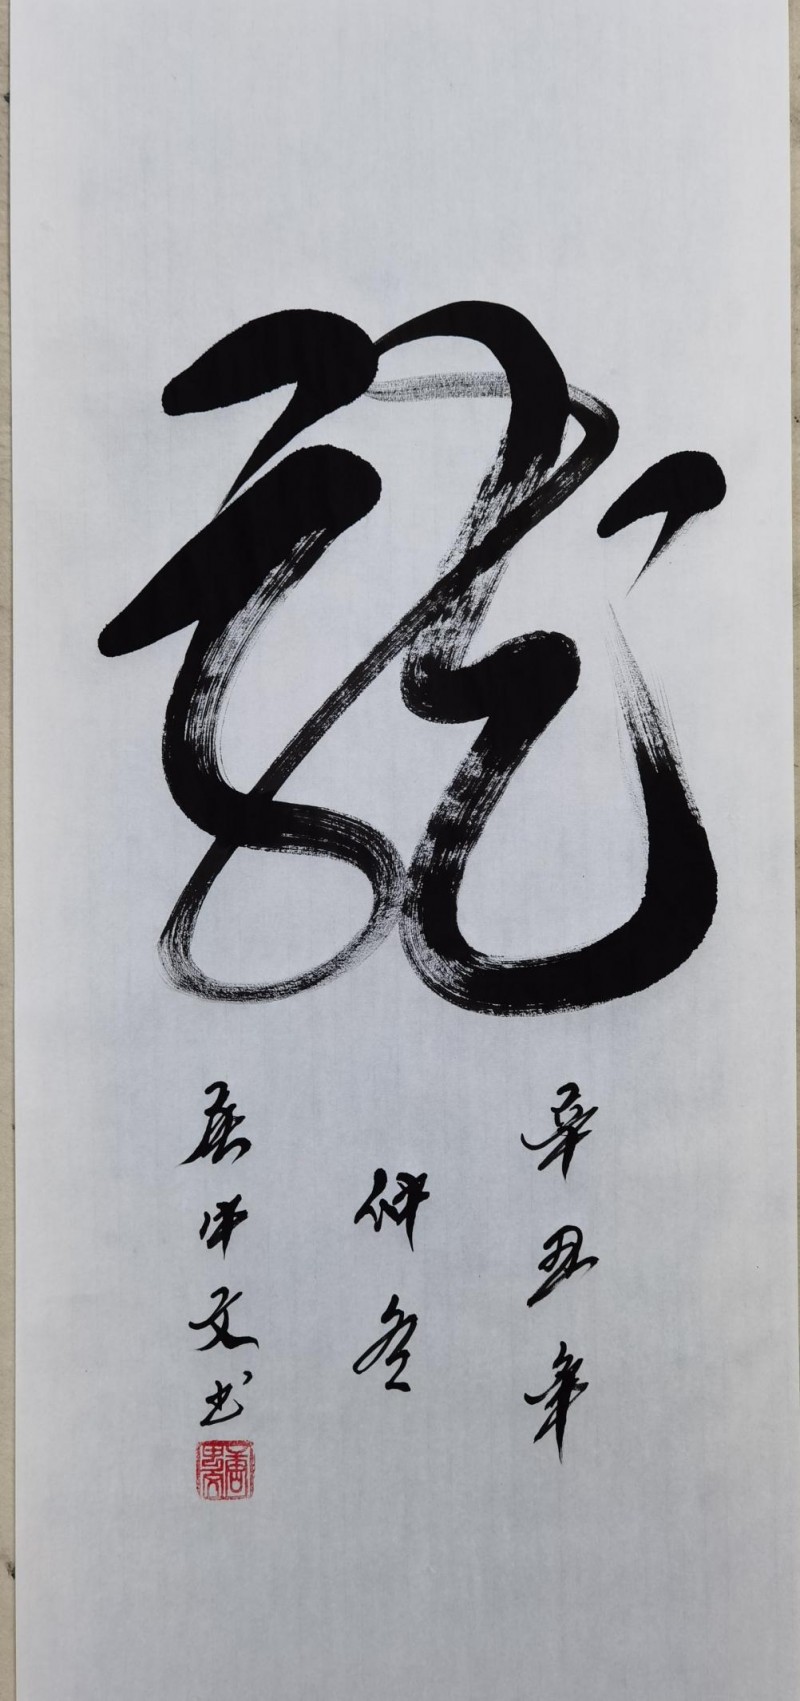 龍
辛丑年
仲冬
唐文书